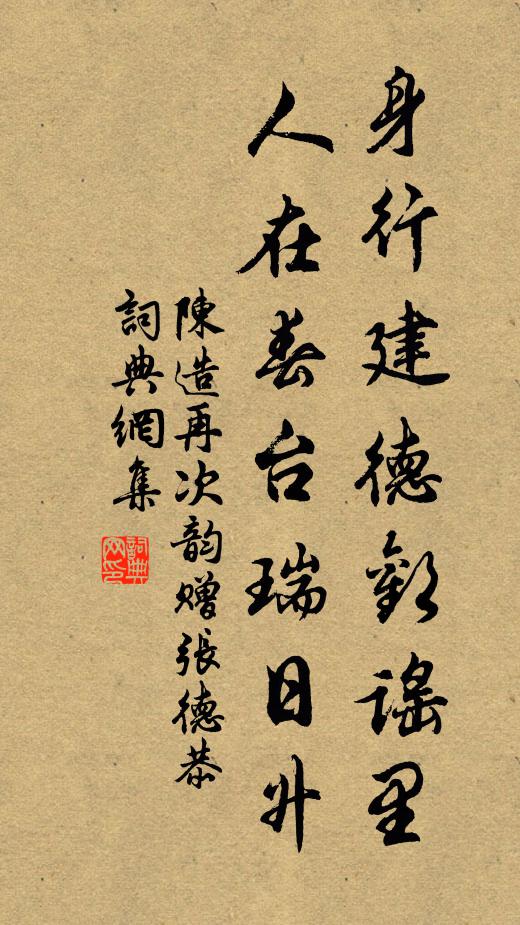 身行建德歡謡里
人在春台瑞日升
陳造再次韵贈張德恭
詞典網集
詞典網印